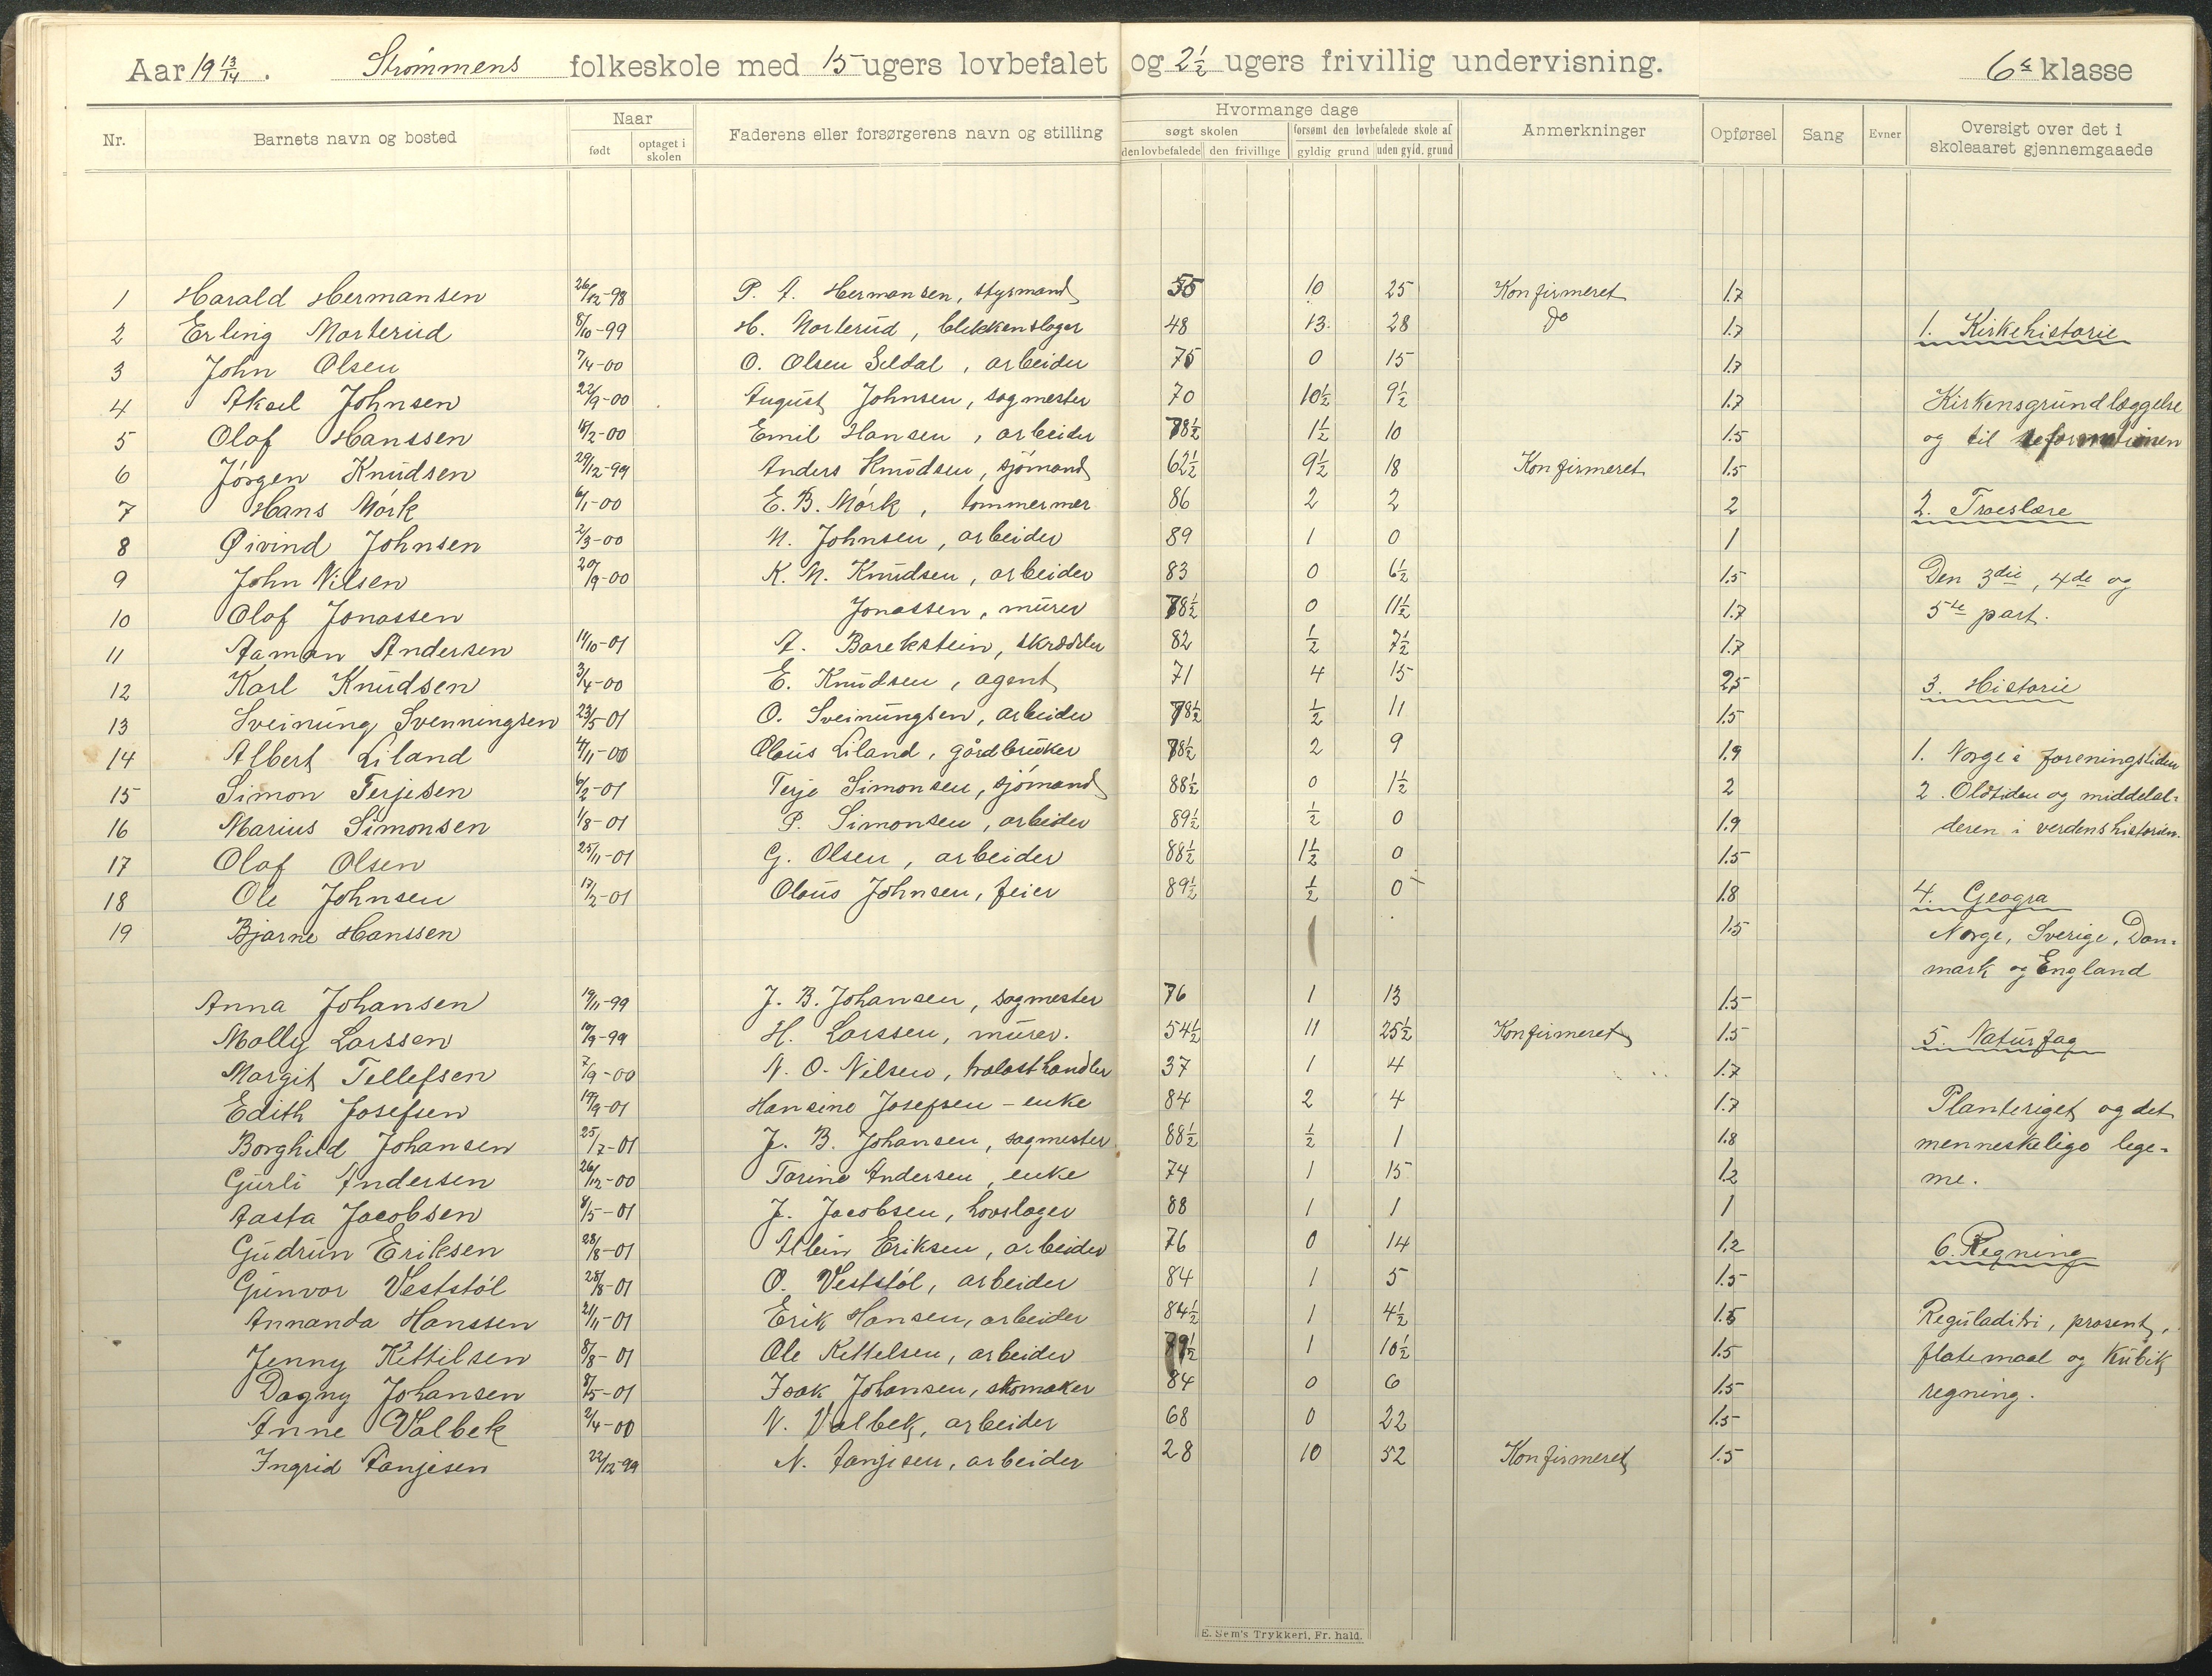 Aar 19 13/14. Strømmens folkeskole med 15 ugers lovbefalet og 2½ ugers frivillig undervisning. 6te klasse
Nr. Barnets navn og bosted Naar født optaget i skolen Faderens eller forsørgerens navn og stilling Hvormange dage søgt skolen den lovbefalede den frivillige forsømt den lovbefalede skole af gyldig grund uden gyld. grund Anmerkninger Opførsel Sang Evner Oversigt over det i skoleaaret gjennemgaaede
1 Harald Hermansen 26/12-98 P. A. Hermansen, styrmand 55 10 25 Konfirmeret 1.7
2 Erling Morterud 8/10-99 H. Morterud, blikkenslager 48 13. 28 Do 1.7 1. Kirkehistorie
3 John Olsen 7/4-00 O. Olsen Seldal, arbeider 75 0 15 1.7
4 Aksel Johnsen 22/9-00 August Johnsen, sagmester 70 10½ 9½ 1.7 Kirkensgrundlæggelse
5 Olaf Hanssen 18/2-00 Emil Hansen, arbeider 78½ 1½ 10 1.5 og til reformationen
6 Jörgen Knudsen 29/12-99 Anders Knudsen, sjömand 62½ 9½ 18 Konfirmeret 1.5
7 Hans Mörk 6/1-00 E. B. Mörk, tömmermer 86 2 2 2 2. Troeslære
8 Øivind Johnsen 2/3-00 N. Johnsen, arbeider 89 1 0 1
9 John Nilsen 20/9-00 K. N. Knudsen, arbeider 83 0 6½ 1.5 Den 3die, 4de og
10 Olaf Jonassen Jonassen, murer 78½ 0 11½ 1.7 5te part.
11 Aaman Andersen 14/10-01 A. Barekstein, skrædder 82 ½ 7½ 1.7
12 Karl Knudsen 3/4-00 E. Knudsen, agent 71 4 15 2,5 3. Historie
13 Sveinung Svenningsen 23/5-01 O. Sveinungsen, arbeider 78½ ½ 11 1.5
14 Albert Liland 4/11-00 Olaus Liland, gårdbruker 78½ 2 9 1.9 1. Norge i foreningstiden
15 Simon Terjesen 6/2-01 Terje Simonsen, sjömand 88½ 0 1½ 2 2. Oldtiden og middelal-
16 Marius Simonsen 1/8-01 P. Simonsen, arbeider 89½ ½ 0 1.9 deren i verdenshistorien.
17 Olaf Olsen 25/11-01 G. Olsen, arbeider 88½ 1½ 0 1.5
18 Ole Johnsen 17/2-01 Olaus Johnsen, feier 89½ ½ 0 1.8 4. Geogra
19 Bjarne Hanssen 1.5 Norge, Sverige, Dan-
mark og England
Anna Johansen 19/11-99 J. B. Johansen, sagmester 76 1 13 1.5
Molly Larssen 10/9-99 H. Larssen, murer. 54½ 11 25½ Konfirmeret 1.5 5. Naturfag
Margit Tellefsen 7/9-00 N. O. Nilsen, trælasthandler 37 1 4 1.7
Edith Josefsen 19/9-01 Hansine Josefsen - enke 84 2 4 1.7 Planteriget og det
Borghild Johansen 25/7-01 J. B. Johansen, sagmester 88½ ½ 1 1.8 menneskelige lege-
Gurli Andersen 26/12-00 Torine Andersen, enke 74 1 15 1.2 me.
Aasta Jacobsen 8/5-01 J. Jacobsen, hovslager 88 1 1 1
Gudrun Eriksen 28/8-01 Albin Eriksen, arbeider 76 0 14 1.2 6. Regning
Gunvor Veststöl 28/8-01 O. Veststöl, arbeider 84 1 5 1.5
Annanda Hanssen 21/11-01 Erik Hansen, arbeider 84½ 1 4½ 1.5 Reguladitri, prosent,
Jenny Kittilsen 8/8-01 Ole Kittelsen, arbeider 79½ 1 10½ 1.5 flatemaal og kubik
Dagny Johansen 8/5-01 Isak Johansen, skomaker 84 0 6 1.5 regning.
Anne Valbek 2/4-00 N. Valbek, arbeider 68 0 22 1.5
Ingrid Tanjesen 22/12-99 N. Tanjesen, arbeider 28 10 52 Konfirmeret 1.5
E. Sem's Trykkeri, Fr. hald.